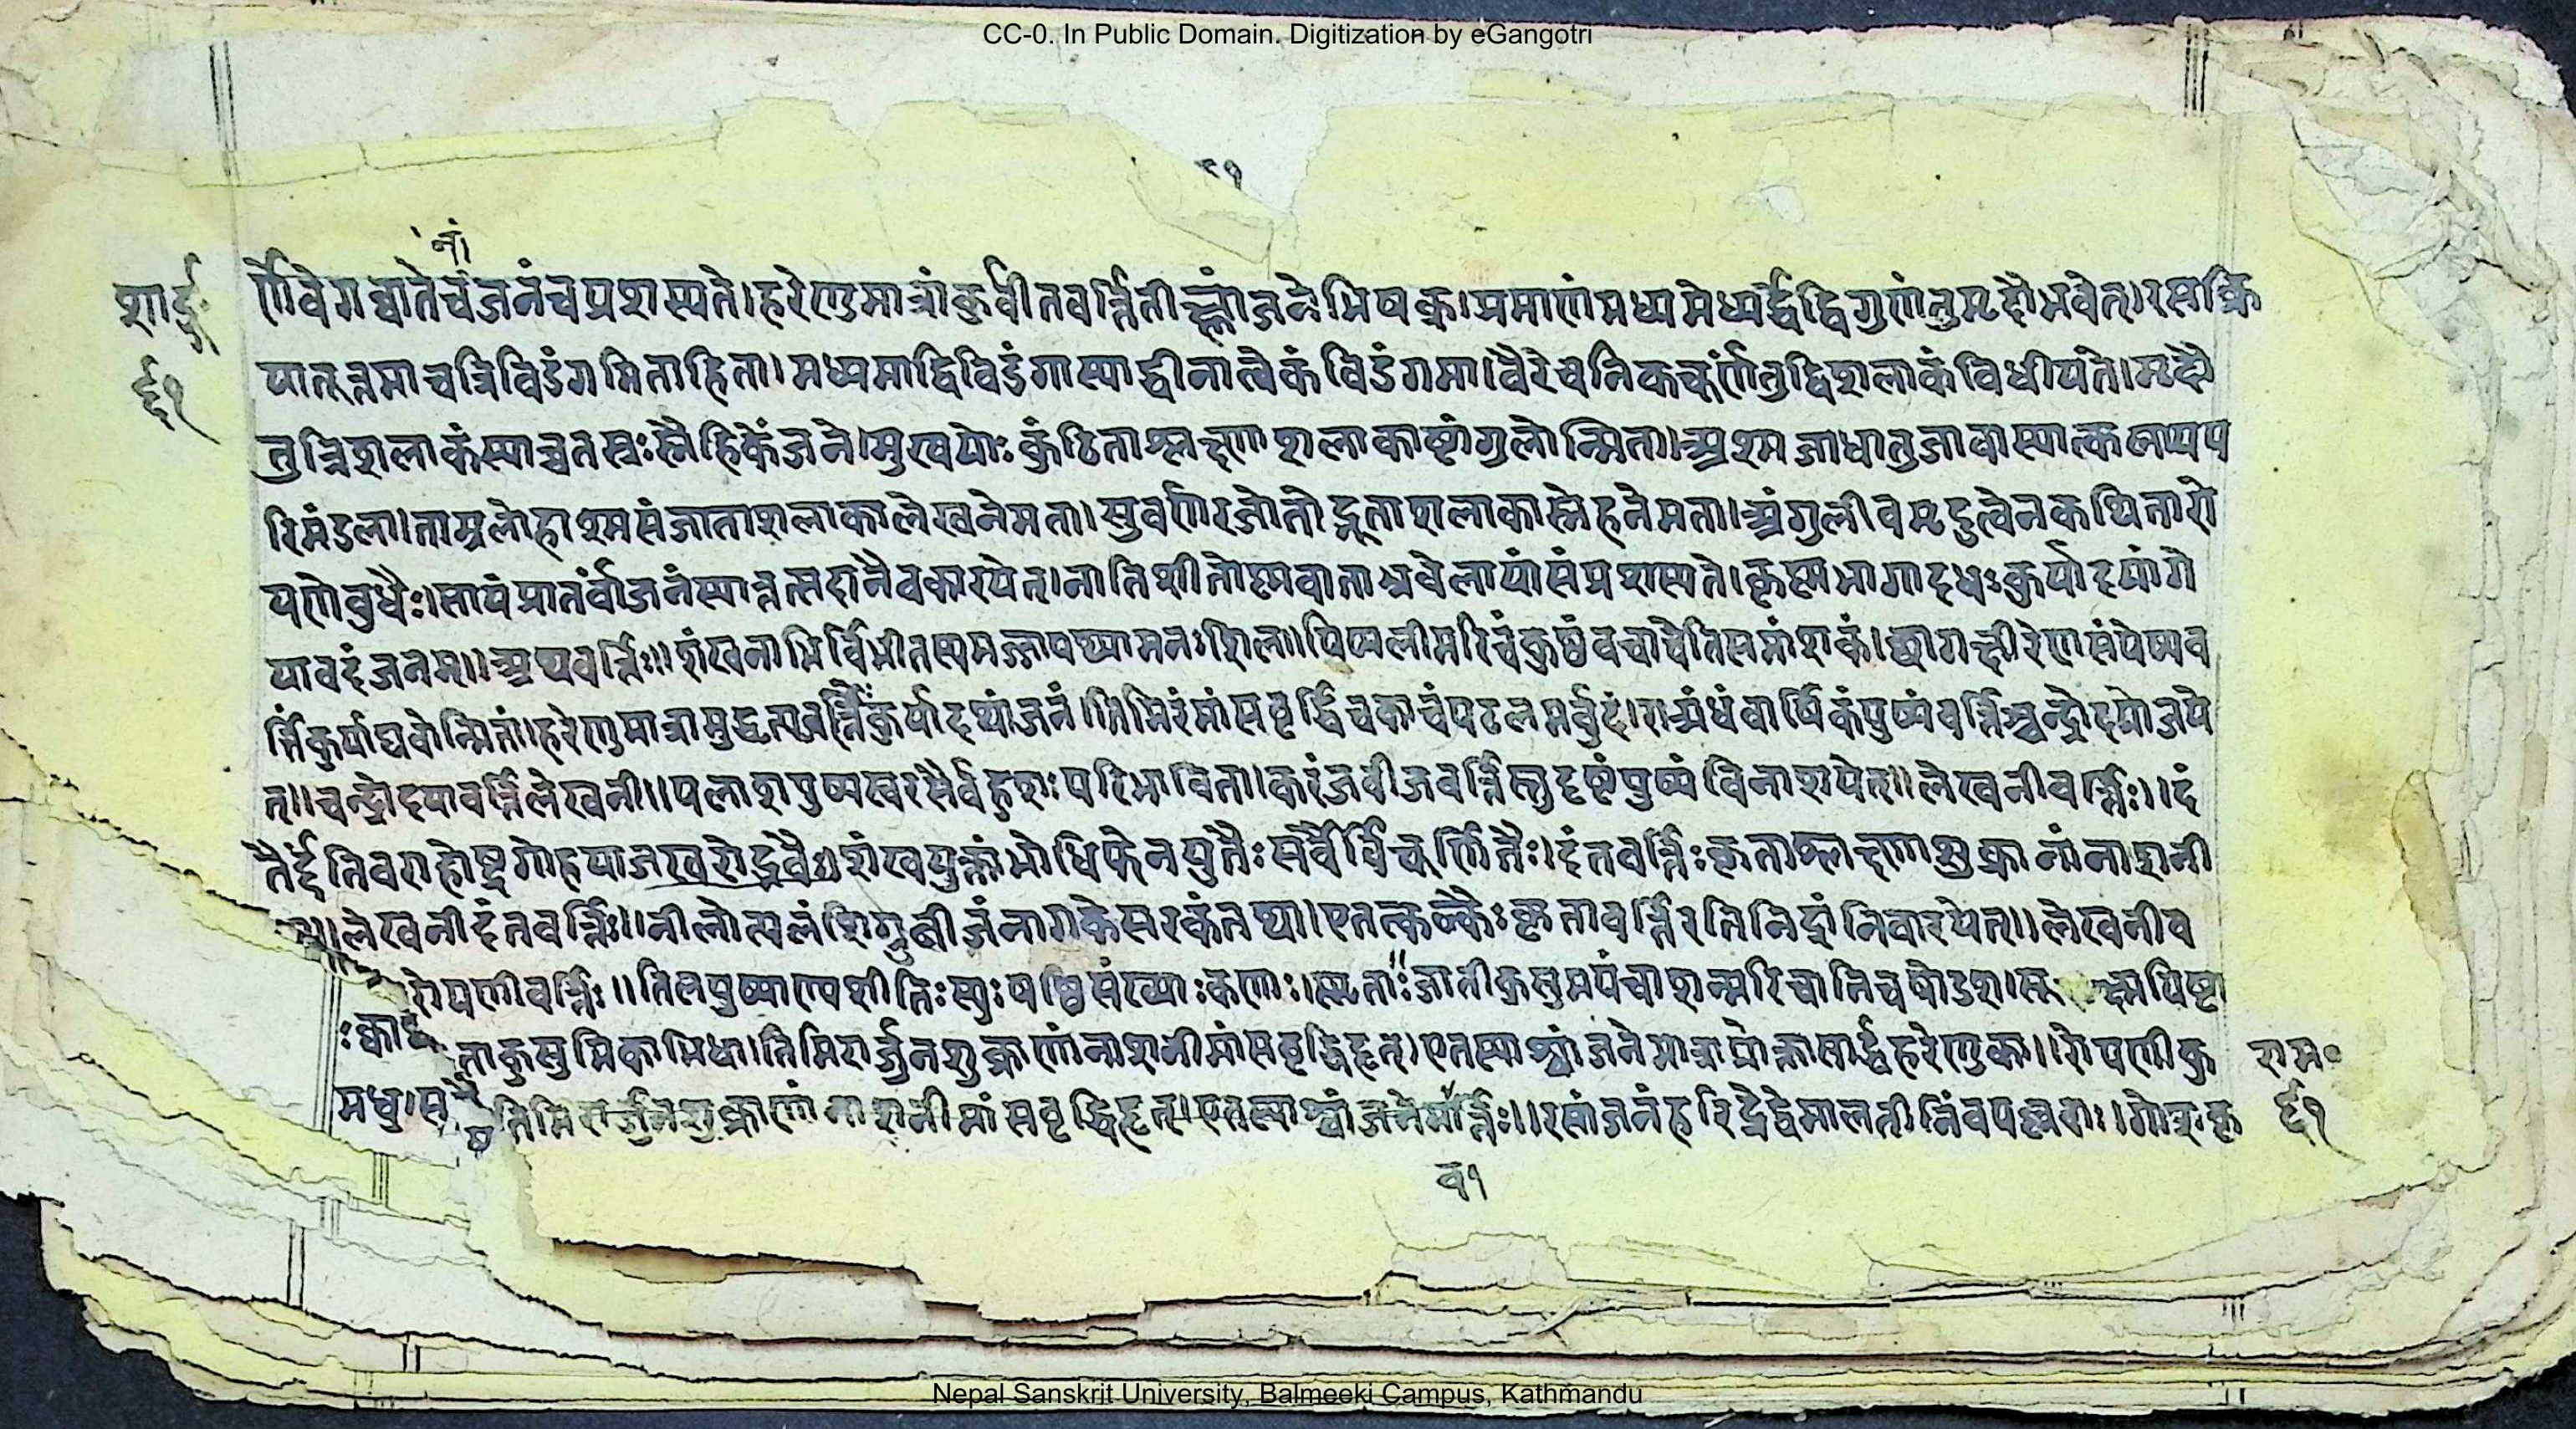 CC-0. In Public Domain. Digitization by eGangotri
९१
नां
शार्ङ्ग
र्णवेगघातेचंजनंचप्रशस्यते।हरेणुमात्रांकुर्वीतवर्त्तितीक्ष्णांजनेभिषक्।प्रमाणंमध्यमेध्यर्द्धंद्विगुणंतुमृदौभवेत्।रसक्रि
यातूत्तमाचत्रिविडंगमिताहिता।मध्यमाद्विविडंगास्याद्धीनात्वैकंविडंगमा।वैरेचनिकचूर्णंतुद्विशलाकंविधीयंते।मृदौ
६१
तुत्रिशलाकंस्याच्चतस्रःस्नैहिकेंजने।मुखयोःकुंठिताश्लक्ष्णाशलाकाष्टांगुलोन्मिता।अश्मजाधातुजावास्यात्कलायप
रिमंडला।ताम्रलोहाश्मसंजाताशलाकालेखनेमता।सुवर्णरजतोद्भूताशलाकास्नेहनेमता।अंगुलीचमृदुत्वेनकथितारो
पणेबुधैः।सायंप्रातर्वांजनंस्यात्तत्सदानैवकारयेत्।नातिशीतोष्णवाताभ्रवेलायांसंप्रशस्यते।कृष्णभागादधःकुर्यादपांगे
यावदंजनम्॥अथवर्त्तिः॥शंखनाभिर्विभीतस्यमज्जापथ्यामनःशिला।पिप्पलीमरिचंकुष्ठंवचाचैतिसमांशकं।छागक्षीरेणसंपेष्यव
र्त्तिंकुर्याद्यवोन्मितां।हरेणुमात्रामुद्धृत्यवर्त्तिंकुर्यादथांजनं।तिमिरंमांसवृद्धिंचकाचंपटलमर्बुदं।रात्र्यंधंवार्षिकंपुष्पंवर्त्तिश्चन्द्रोदयोजये
त्॥चन्द्रोदयावर्त्तिलेखनी॥पलाशपुष्पस्वरसैर्वहुशःपरिभाविता।करंजवीजवर्त्तिस्तुदृष्टंपुष्पंविनाशयेत्॥लेखनीवर्त्तिः॥दं
तैर्द्दंतिवराहोष्ट्रगोहयाजखरोद्भवैः।शंखयुक्तांभोधिफेनयुतैःसर्वैर्विचूर्णितैः।दंतवर्त्तिःकृताश्लक्ष्णाशुक्रानांनाशनी
लेखनीदंतवर्त्तिः॥नीलोत्पलंशिग्रुबीजंनागकेसरकंतथा।एतत्कल्कैःकृतावर्त्तिरतिनिद्रांनिवारयेत्॥लेखनीव
रोपणीवर्त्तिः॥तिलपुष्पाण्यशीतिःस्युःषष्ठिसंख्याःकणाः।स्मृताःजातीकुसुमपंचाशन्मरिचानिचषोडश।
ताकुसुमिकाभिधा।तिमिरार्जुनशुक्राणांनाशनीमांसवृद्धिहृत्।एतस्याश्चांजनेमात्राप्रोक्तासार्द्धहरेणुका॥रोपणीकु
राम॰
मधु।स
तिमिरार्जुनशुक्राणांनाशनीमांसवृद्धिहृत्।एतस्याश्चांजनेमार्त्तिः॥रसांजनंहरिद्रेद्वेमालतीनिंवपल्लवाः।गोशकृ
६१
व१
Nepal Sanskrit University, Balmeeki Campus, Kathmandu